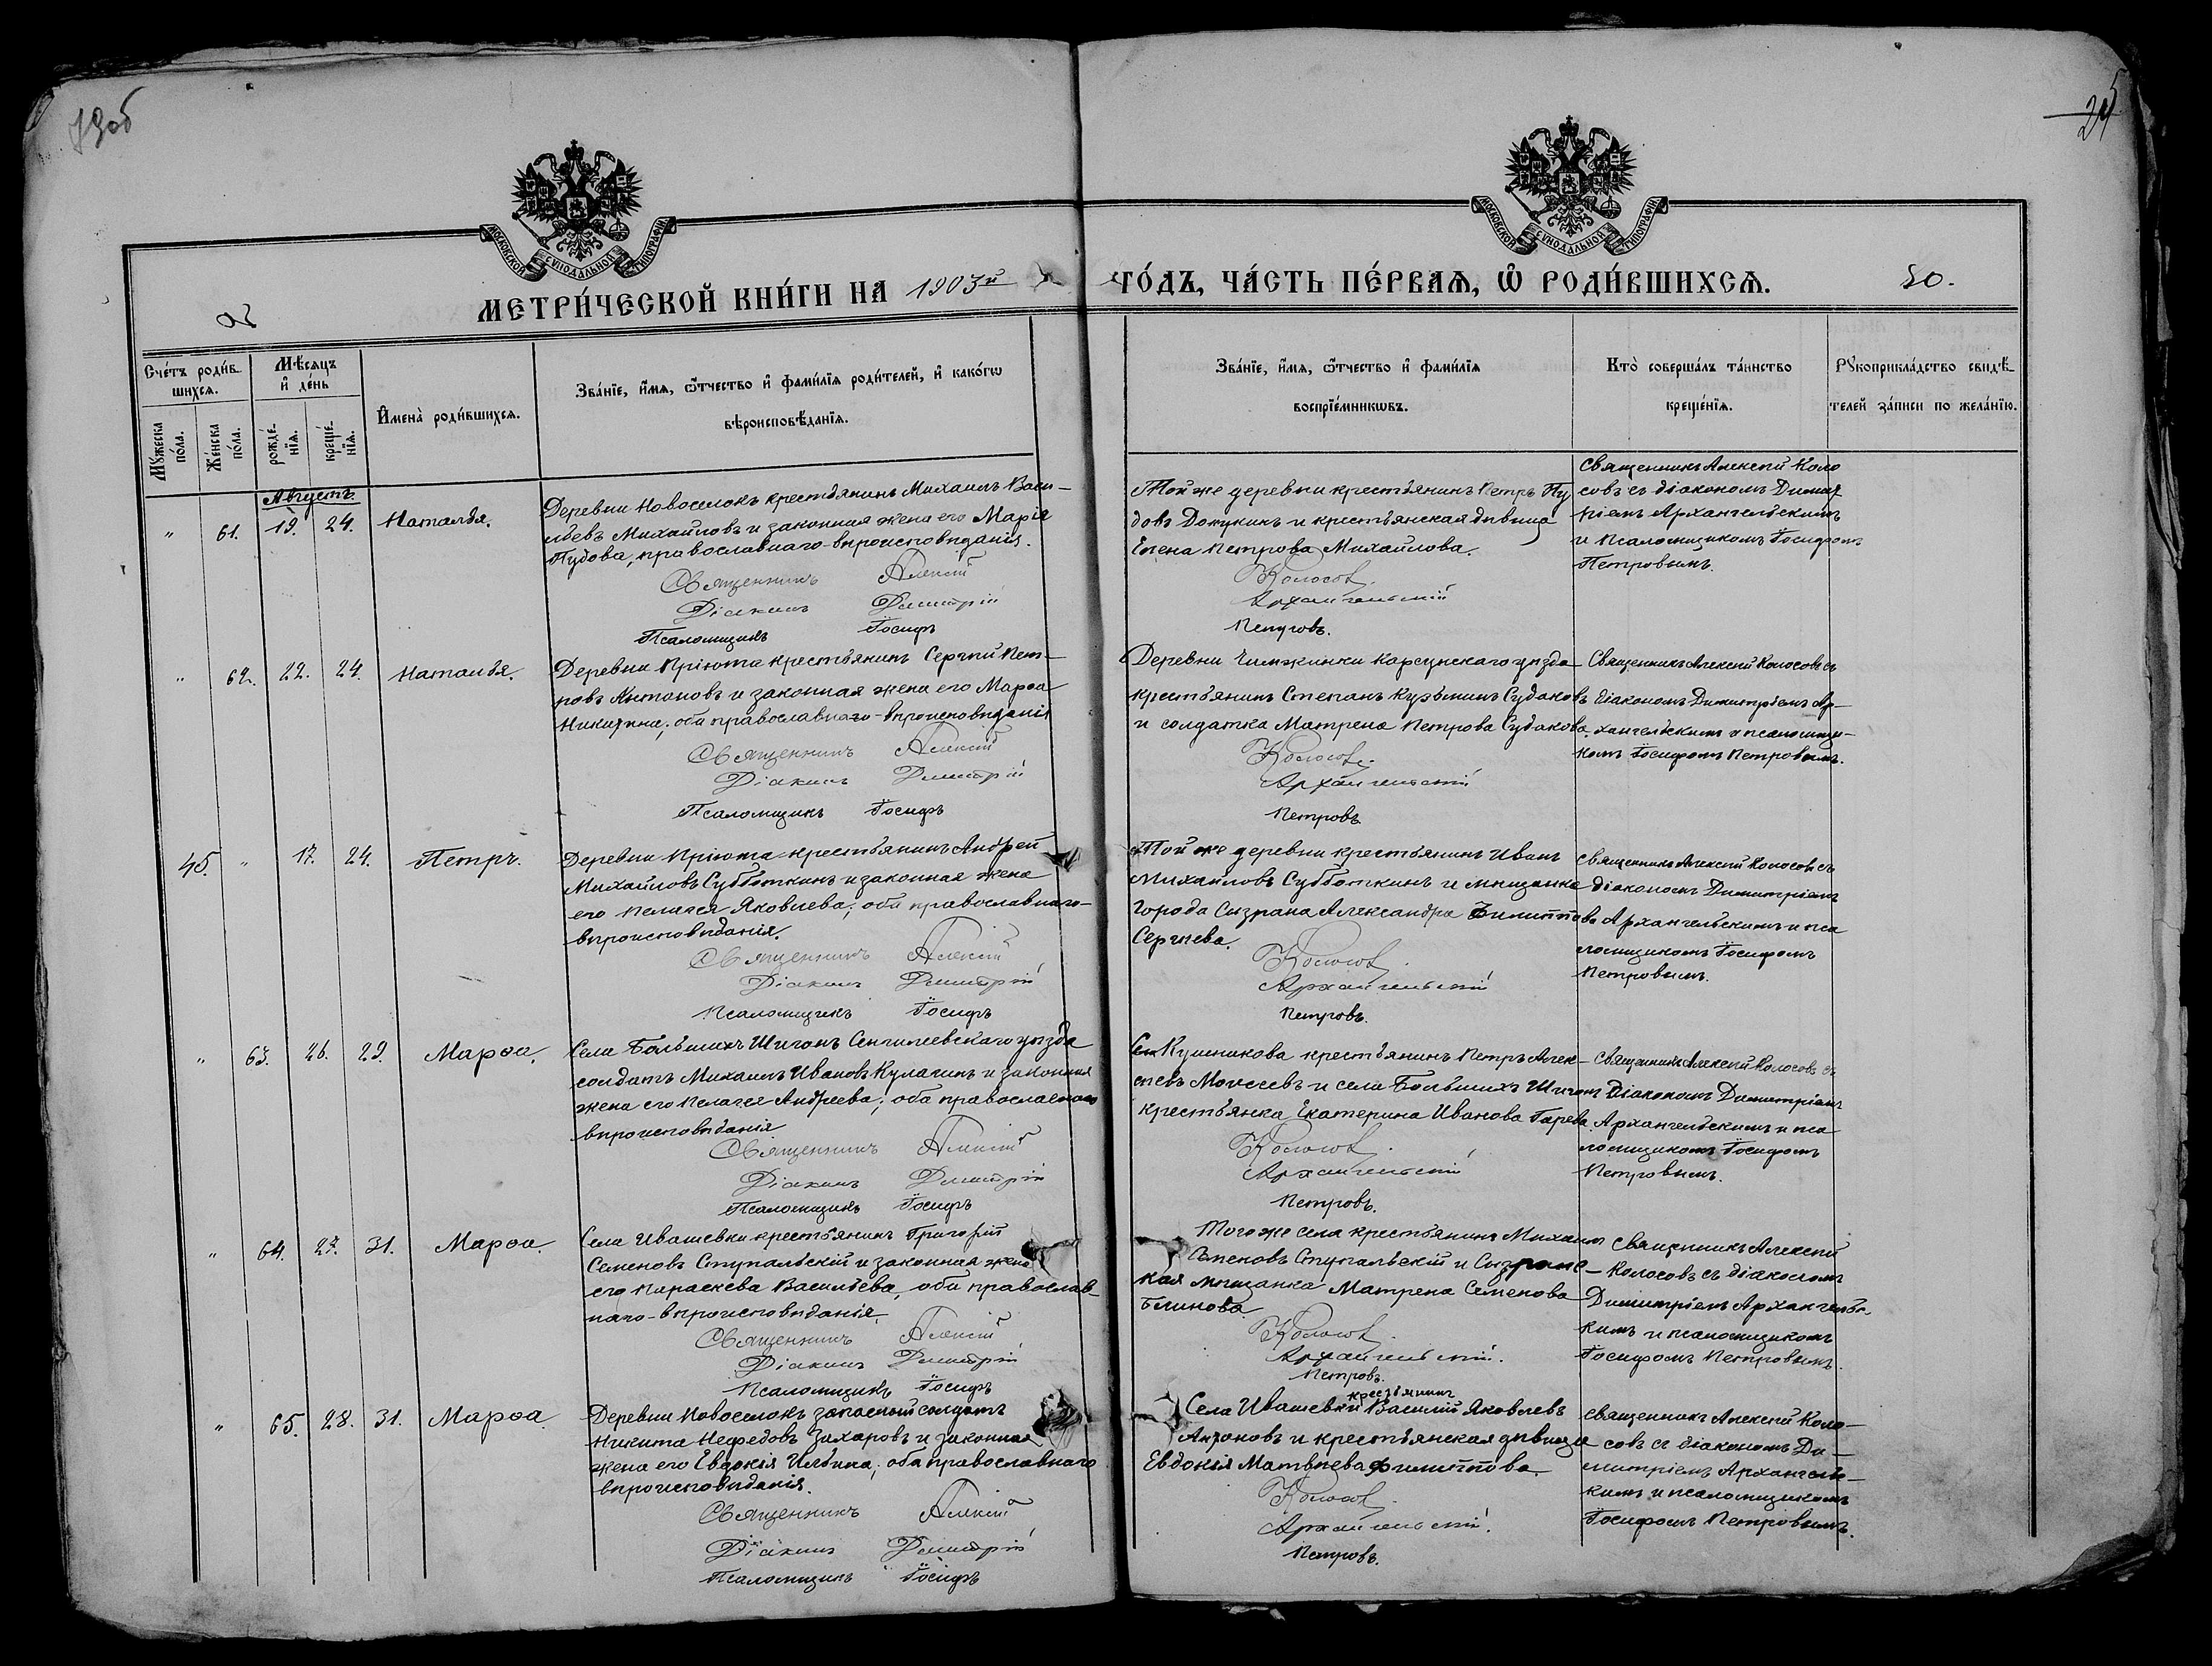 МОСКОВСКОЙ СѴНОДАЛЬНОЙ ТИПОГРАФІИ
МОСКОВСКОЙ СѴНОДАЛЬНОЙ ТИПОГРАФІИ
МЕТРИ́ЧЕСКОЙ КНИ́ГИ НА 1903й ГО́ДЪ, ЧА́СТЬ ПЕ́РВАѦ, Ѽ РОДИ́ВШИХСѦ. 50.
Сче́тъ роди́в-
шихсѧ.
Мѣ́сѧцъ
и҆ де́нь
Мꙋ́жеска по́ла.
Же́нска по́ла.
рожде́-нїѧ.
креще́-нїѧ.
И҆мена̀ роди́вшихсѧ.
Зва́нїе, и҆́мѧ, ѻ҆́тчество и҆ фами́лїѧ роди́телей, и҆ како́гѡ
вѣроисповѣ́данїѧ.
Зва́нїе, и҆́мѧ, ѻ҆́тчество и҆ фами́лїѧ
воспрїе́мникѡвъ.
Кто̀ соверша́лъ та́инство
креще́нїѧ.
Рꙋкоприкла́дство свидѣ́-
телей за́писи по жела́нїю.
Августъ
" 61. 19. 24. Наталья.
Деревни Новоселокъ крестьянинъ Михаилъ Васи-
льевъ Михайловъ и законная жена его Марія
Пудова, православнаго-вѣроисповѣданія.
Священникъ Алексій
Діаконъ Димитрій
Псаломщикъ Іосифъ
Той же деревни крестьянинъ Петръ Пу
довъ Докукинъ и крестьянская дѣвица
Елена Петрова Михайлова.
Колосовъ.
Архангельскій
Петровъ.
Священникъ Алексій Коло
совъ съ діакономъ Димит
ріемъ Архангельскимъ
и псаломщикомъ Іосифомъ
Петровымъ.
" 62. 22. 24. Наталья.
Деревни Пріюта крестьянинъ Сергѣй Пет-
ровъ Антоновъ и законная жена его Марѳа
Никитина; оба православнаго-вѣроисповѣданія
Священникъ Алексій
Діаконъ Димитрій
Псаломщикъ Іосифъ
Деревни Чимжинки Карсунскаго уѣзда
крестьянинъ Степанъ Кузьминъ Судаковъ
и солдатка Матрена Петрова Судакова.
Колосовъ.
Архангельскій
Петровъ
Священникъ Алексій Колосовъ съ
діакономъ Димитріемъ Ар-
хангельскимъ и псаломщи-
комъ Іосифомъ Петровымъ.
45. " 17. 24. Петръ.
Деревни Пріюта крестьянинъ Андрей
Михайловъ Субботкинъ и законная жена
его Пелагея Яковлева; оба православнаго-
вѣроисповѣданія.
Священникъ Алексій
Діаконъ Димитрій
Псаломщикъ Іосифъ
Той же деревни крестьянинъ Иванъ
Михайловъ Субботкинъ и мѣщанка
города Сызрана Александра Филиппова
Сергѣева.
Колосовъ.
Архангельскій
Петровъ.
Священникъ Алексій Колосовъ съ
діакономъ Димитріемъ
Архангельскимъ и пса
ломщикомъ Іосифомъ
Петровымъ.
" 63. 26. 29. Марѳа.
Села Большихъ Шигонъ Сенгилеевскаго уѣзда
солдатъ Михаилъ Ивановъ Кулагинъ и законная
жена его Пелагея Андреева; оба православнаго
вѣроисповѣданія
Священникъ Алексій
Діаконъ Димитрій
Псаломщикъ Іосифъ
Села Кушникова крестьянинъ Петръ Алек-
сѣевъ Моисеевъ и села Большихъ Шигонъ
крестьянка Екатерина Иванова Гарева.
Колосовъ.
Архангельскій
Петровъ.
Священникъ Алексій Колосовъ съ
діакономъ Димитріемъ
Архангельскимъ и пса
ломщикомъ Іосифомъ
Петровымъ.
" 64. 27. 31. Марѳа.
Села Ивашевки крестьянинъ Григорій
Семеновъ Ступальскій и законная жена
его Параскева Васильева, оба православ-
наго-вѣроисповѣданія.
Священникъ Алексій
Діаконъ Димитрій
Псаломщикъ Іосифъ
Того же села крестьянинъ Михаилъ
Семеновъ Ступальскій и Сызранс-
кая мѣщанка Матрена Семенова
Блинова.
Колосовъ.
Архангельскій.
Петровъ.
Священникъ Алексій
Колосовъ съ діакономъ
Димитріемъ Архангельс-
кимъ и псаломщикомъ
Іосифомъ Петровымъ.
" 65. 28. 31. Марѳа
Деревни Новоселокъ запасный солдатъ
Никита Нефедовъ Захаровъ и законная
жена его Евдокія Ильина; оба православнаго
вѣроисповѣданія.
Священникъ Алексій
Діаконъ Димитрій
Псаломщикъ Іосифъ
крестьянинъ
Села Ивашевки Василій Яковлевъ
Антоновъ и крестьянская дѣвица
Евдокія Матвѣева Филиппова.
Колосовъ.
Архангельскій.
Петровъ.
Священникъ Алексій Коло-
совъ съ діакономъ Ди-
митріемъ Архангельс-
кимъ и псаломщикомъ
Іосифомъ Петровымъ.